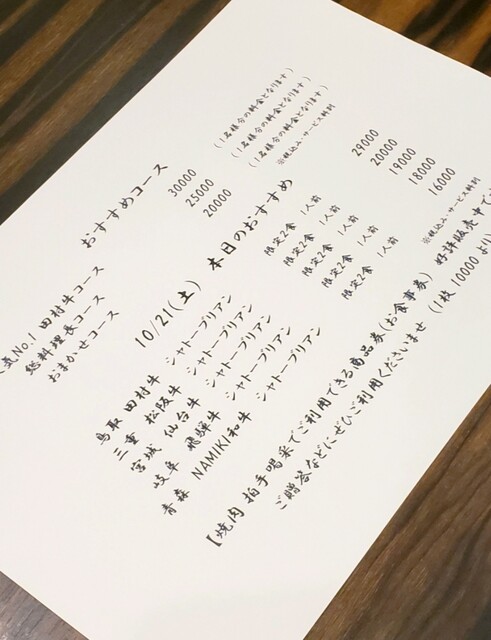 おすすめコース
気No.1 田村牛コース 30000 (1名様分の料金となります)
総料理長コース 25000 (1名様分の料金となります)
おまかせコース 20000 (1名様分の料金となります)
※税込み・サービス料別
10/21(土) 本日のおすすめ
鳥取 田村牛 シャトーブリアン 限定2食 1人前 29000
三重 松阪牛 シャトーブリアン 限定2食 1人前 20000
宮城 仙台牛 シャトーブリアン 限定2食 1人前 19000
岐阜 飛騨牛 シャトーブリアン 限定2食 1人前 18000
青森 NAMIKI和牛 シャトーブリアン 限定2食 1人前 16000
※税込み・サービス料別
【焼肉 拍手喝采でご利用できる商品券(お食事券) 好評販売中で
ご贈答などにぜひご利用くださいませ (1枚 10000より